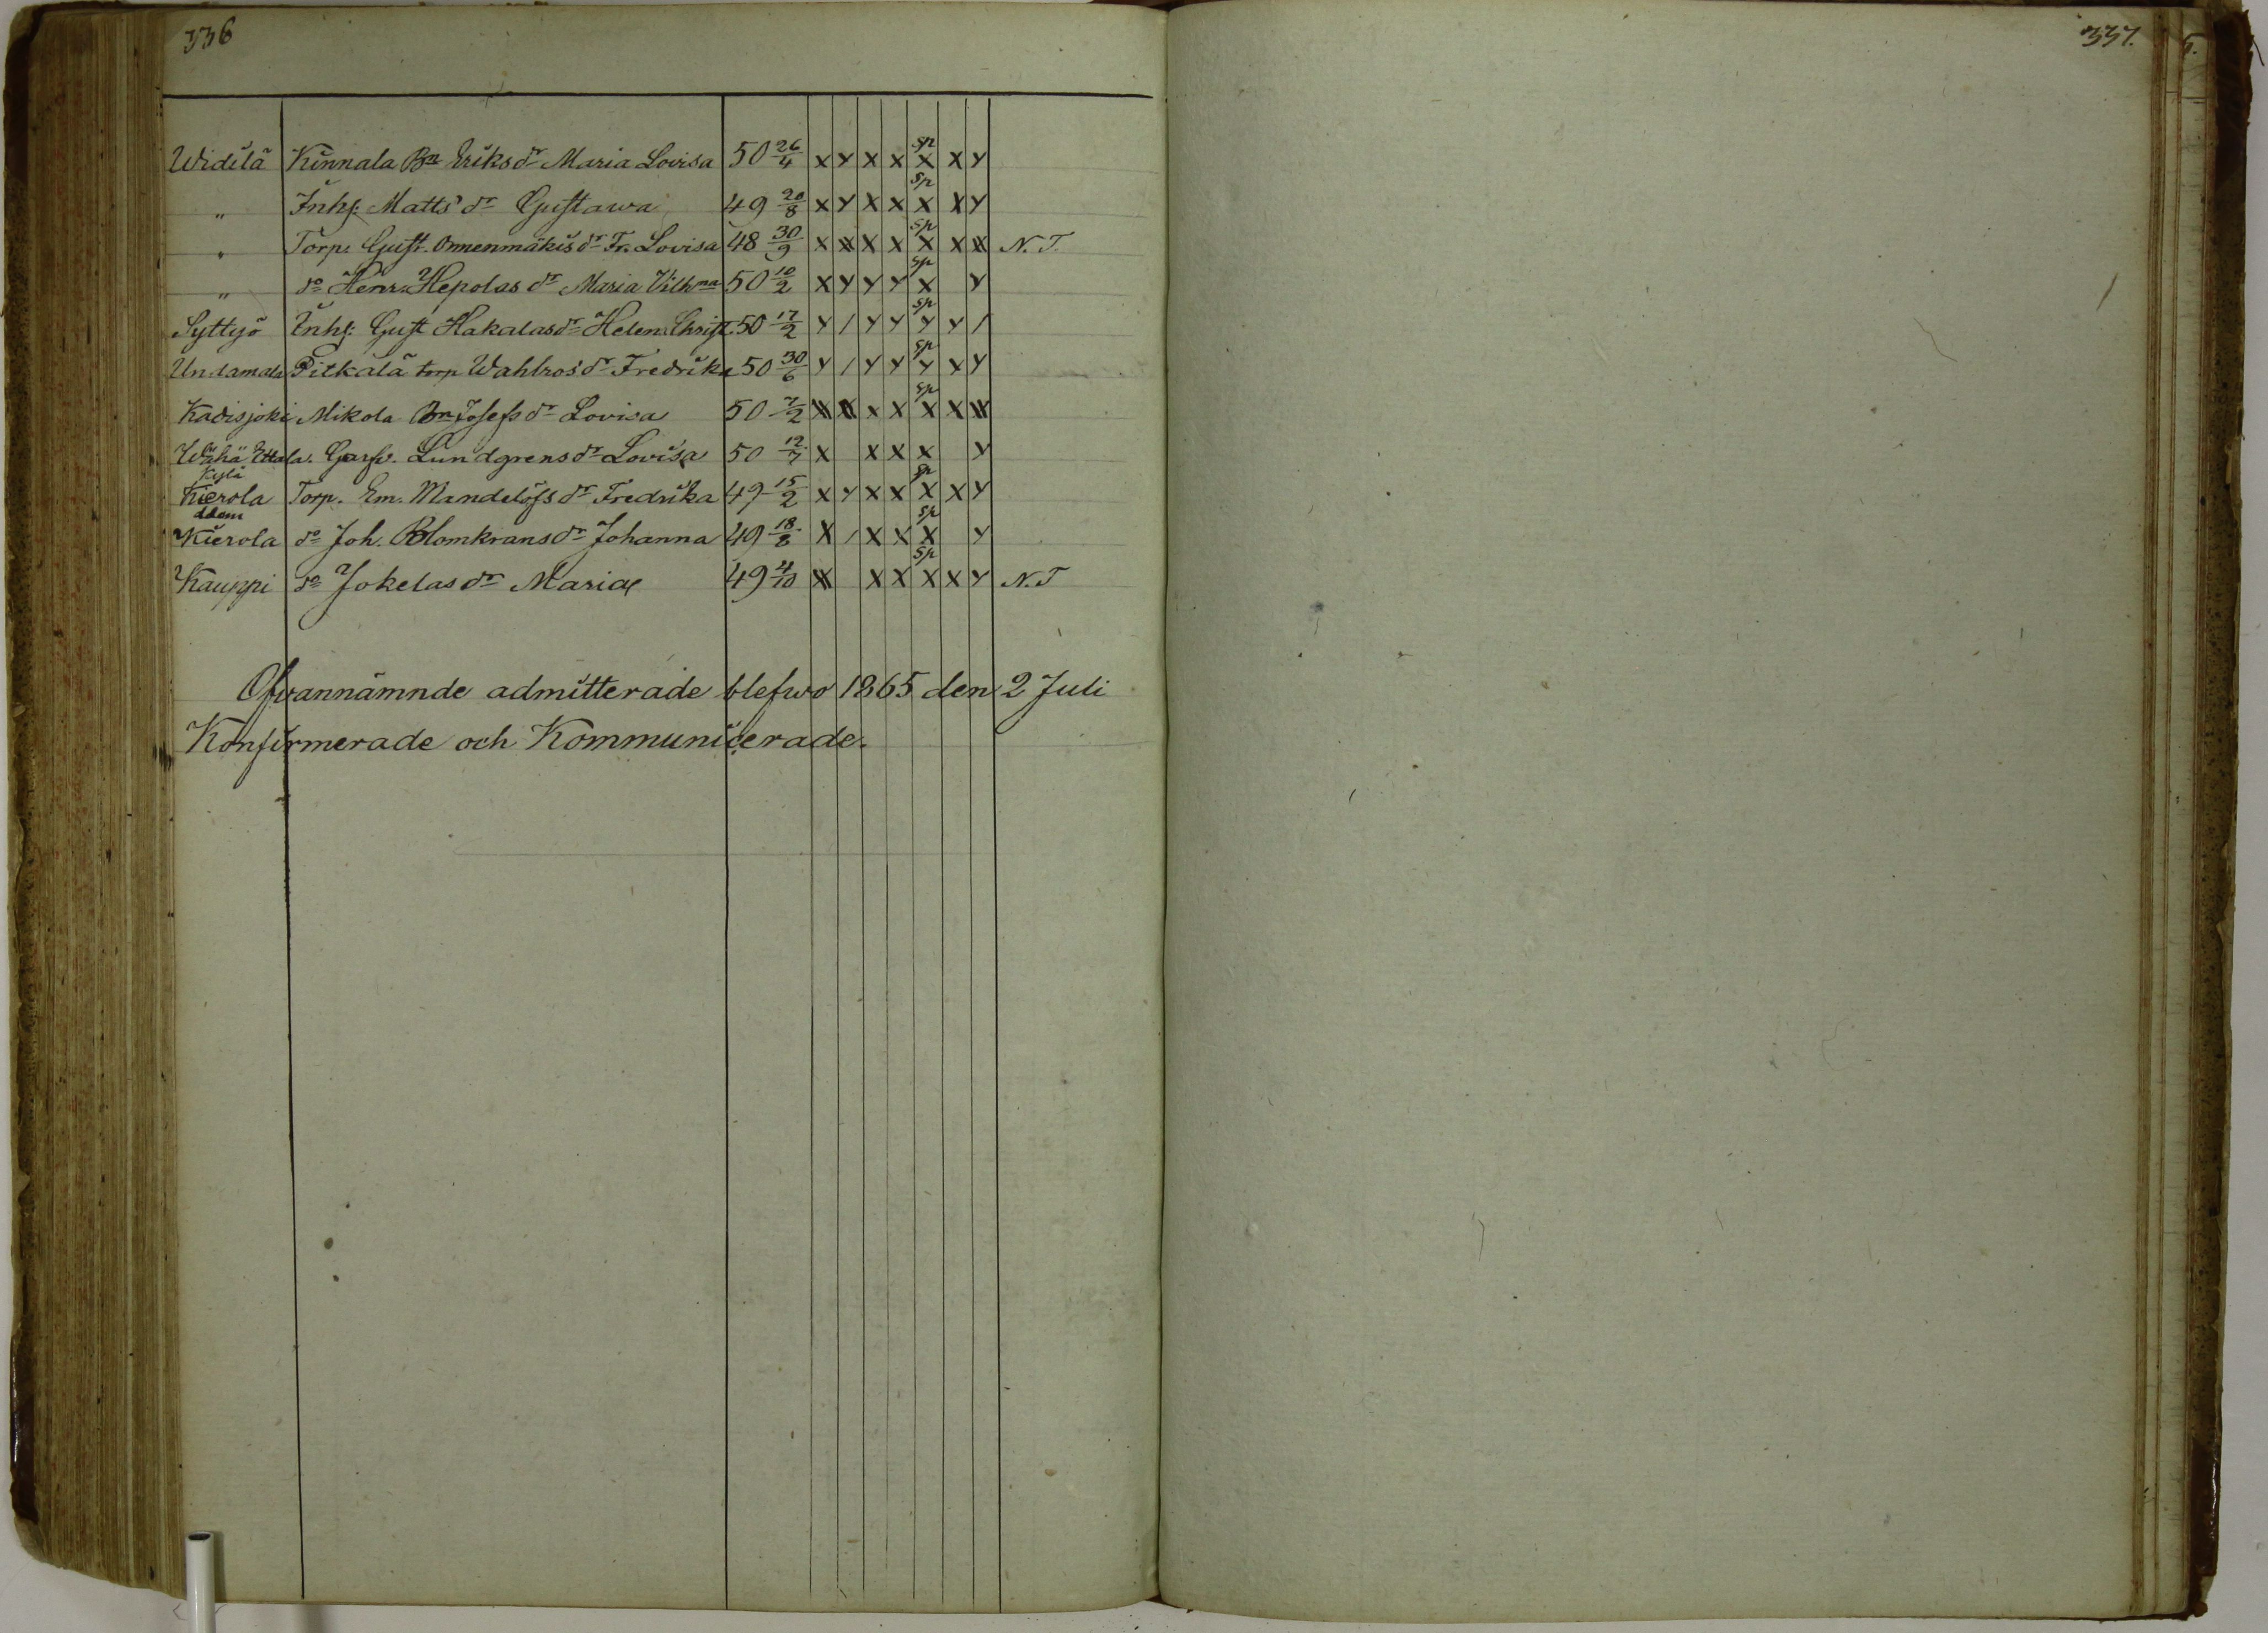 336
337.
Widilä Kinnala Bn Eriks dr Maria Lovisa 50 26/4 x y x x sp x x y
" Inhs: Matts dr Gustawa 49 20/8 x y x x sp x x y
" Torp. Gust. Onnenmäkis dr Fr. Lovisa 48 30/9 x xx x x sp x x xx N. T.
" do Henr. Hepolas dr Maria Vilhna 50 10/2 x y y y sp x y
Syttyö Inhs: Gust Hakalas dr Helen. Christ. 50 17/2 y / y y sp y y /
Undamala Pitkälä torp Wahlros dr Fredrika 50 30/6 y / y y sp y x y
Kadisjoki Mikola Bn Josefs dr Lovisa 50 7/2 xx xx x x sp x x xx
Wähä Ettala. Garfv. Lundgrens dr Lovisa 50 12/7 x x x x y
Kylä
Kierola Torp. Em. Mandelöfs dr Fredrika 49 15/2 x y x x sp x x y
Idem
Kierola do Joh. Blomkrans dr Johanna 49 18/8 x / x x sp x y
Kauppi do Jokelas dr Maria 49 4/10 xx x x sp x x y N. T
Ofvannämnde admitterade blefwo 1865 den 2 Juli
Konfirmerade och Kommunicerade.